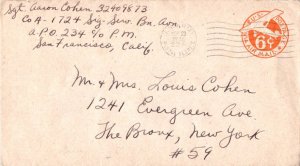 Sgt. Aaron Cohen 32409873
Co A - 1724 Sig. Serv. Bn. Avn.
A.P.O. 234 % P.M.
San Francisco, Calif.
6¢
Mr. & Mrs. Louis Cohen
1241 Evergreen Ave
The Bronx, New York
# 59